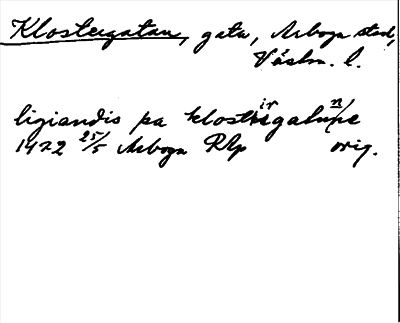 Klostergatan, gata, Arboga stad,
Västm. l.
ligiandis pa klostirsgatunne
1472 25/5 Arboga RAp orig.